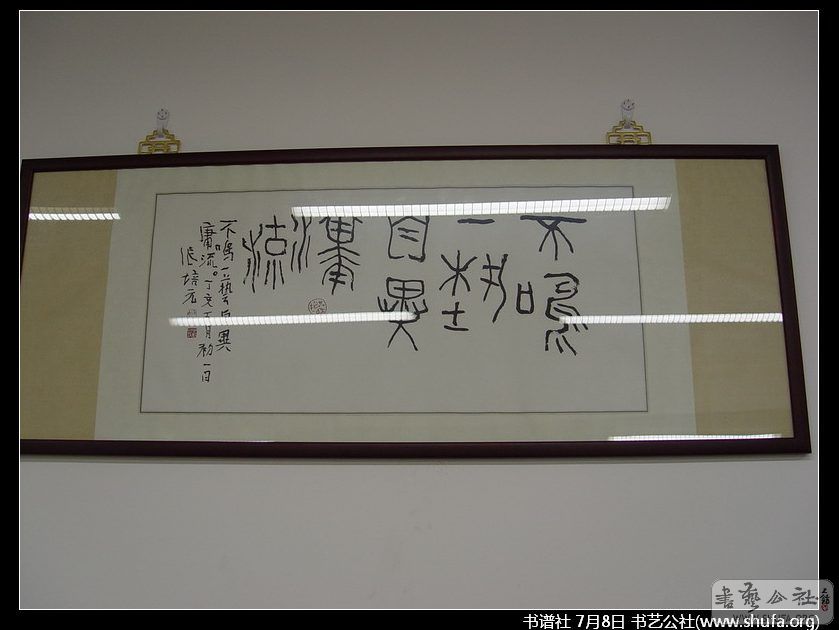 不鳴
一藝
自異
庸
流
不鳴一藝自異
庸流。丁亥五月初一日
張培元
書藝公社
WWW.SHUFA.ORG
书谱社 7月8日 书艺公社(www.shufa.org)